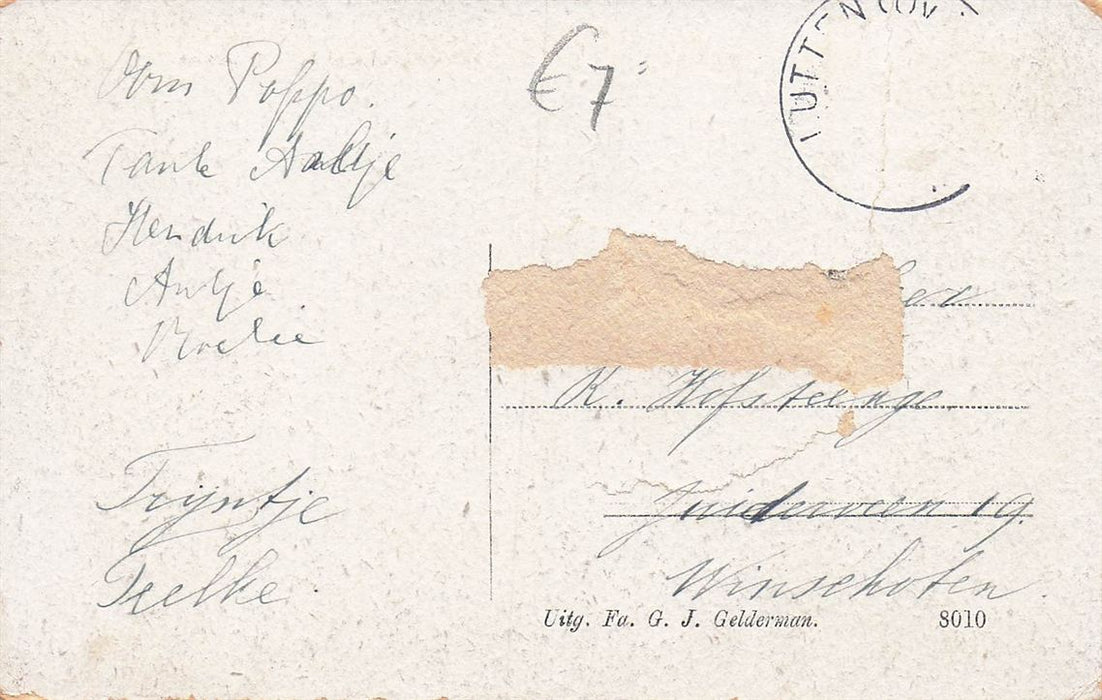 Oom Poppo.
Tante Aaltje
Hendrik
Antje.
Roelie
Trijntje
Eelke
€7
K. Hofsteenge
Zuiderveen 19.
Winschoten
Uitg. Fa. G. J. Gelderman.
8010